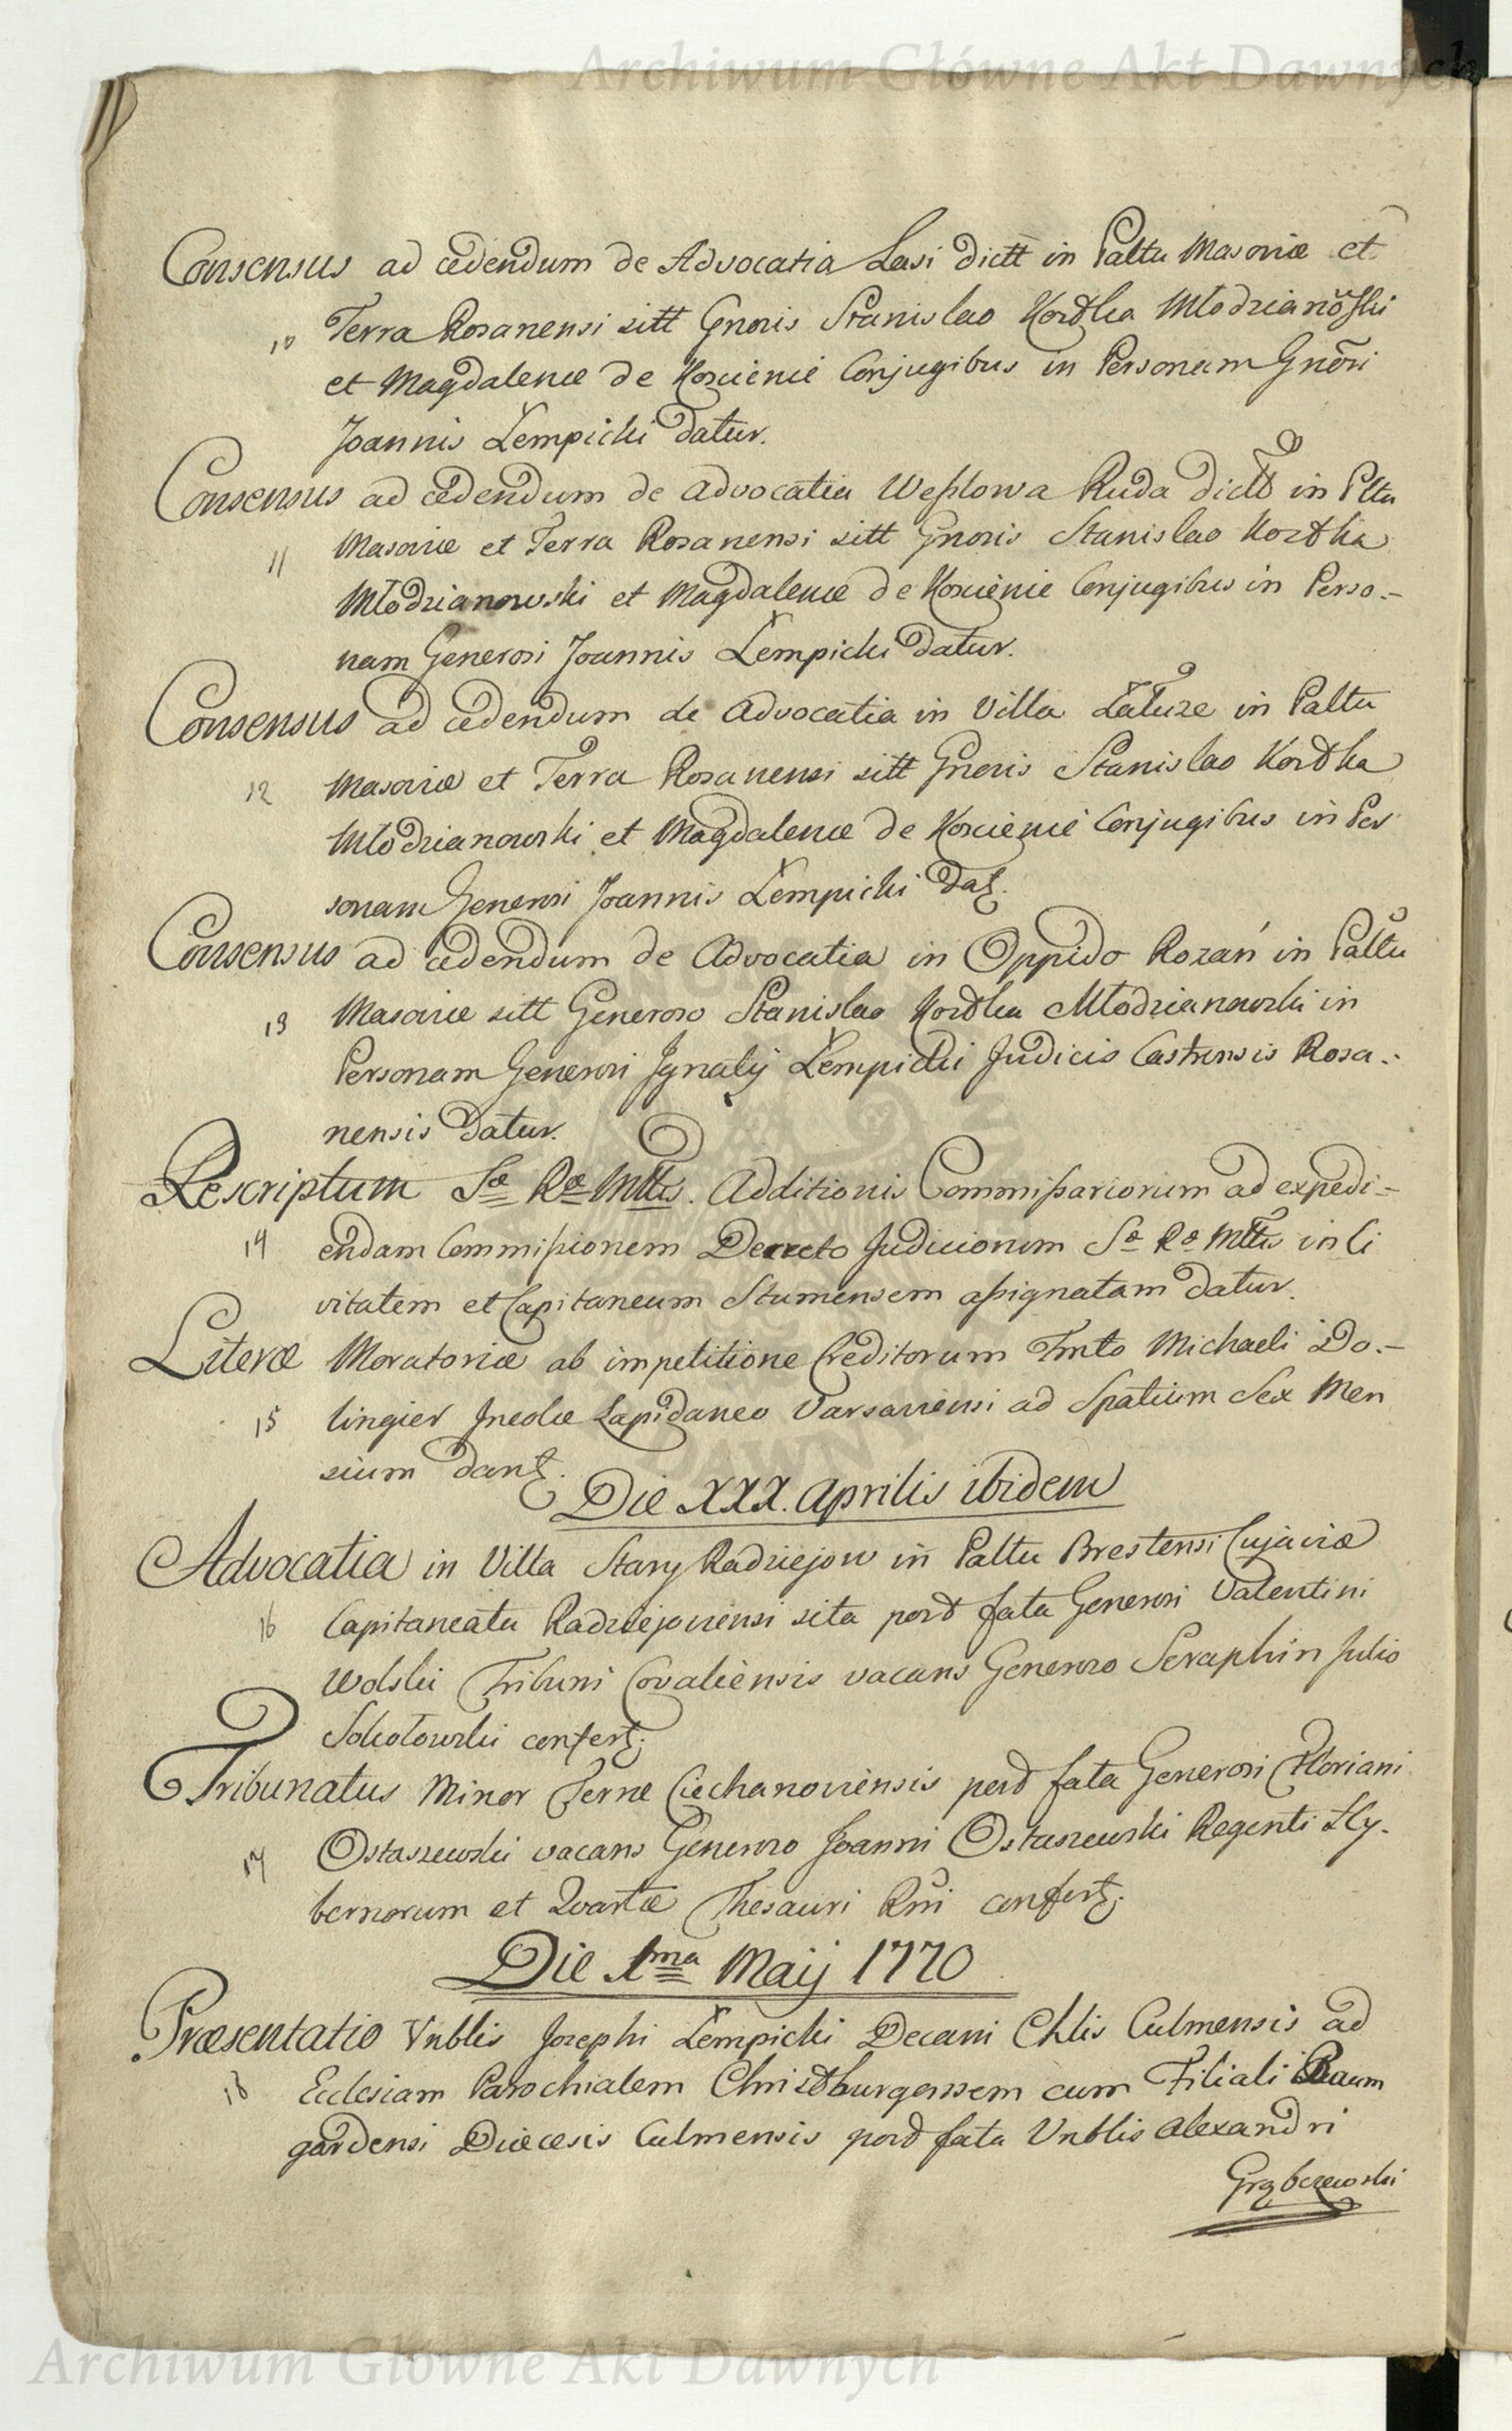 Archiwum Główne Akt Dawnych
Consensus ad cedendum de Advocatia Lasi dictt in Paltu Masoviæ et
10 Terra Rosanensi sitt Gnoris Stanislao Kordka Młodzianõski
et Magdalenæ de Koscienie Conjugibus in Personam Gnõri
Joannis Łempicki datur.
Consensus ad cedendum de Advocatia Weszlowa Ruda dictt in Pltu
11 Masoviæ et Terra Rosanensi sitt Gnoris Stanislao Kordka
Młodzianowski et Magdalenæ de Koscienie Conjugibus in Perso.-
nam Generosi Joannis Łempicki datur.
Consensus ad cedendum de Advocatia in Villa in Paltu
12 Masoviæ et Terra Rosanensi sitt Gnoris Stanislao Kordka
Młodzianowski et Magdalenæ de Koscienie Conjugibus in Per
sonam Generosi Joannis Łempicki dat.
Consensus ad cedendum de Advocatia in Oppido Rozań in Paltu
13 Masoviæ sitt Generoso Stanislao Kordka Młodzianowski in
Personam Generosi Ignatij Łempicki Judicis Castrensis Rosa.-
nensis datur.
Rescriptum Sæ Ræ Mttis. Additionis Commissariorum ad expedi-
14 endam Commissionem Decreto Judiciorum Sæ Ræ Mttis in Ci
vitatem et Capitaneum Stumensem assignatam datur.
Literæ Moratoriæ ab impetitione Creditorum Fmto Michaeli Do.-
15 lingier Incolæ Lapidaneo Varsaviensi ad Spatium Sex Men
sium dant.
Die XXX. Aprilis ibidem
Advocatia in Villa Stary Radziejow in Paltu Brestensi Cujaviæ
16 Capitaneatu Radziejoviensi sita post fata Generosi Valentini
Wolski Tribuni Covaliensis vacans Generoso Seraphin Julio
Sokołowski confert.
Tribunatus Minor Terræ Ciechanoviensis post fata Generosi Floriani
17 Ostaszewski vacans Generoso Joanni Ostaszewski Regenti Hy-
bernorum et Quartæ Thesauri Rni confert.
Die 1ma Maij 1770
Præsentatio Vnblis Josephi Łempicki Decani Chlis Culmensis ad
18 Ecclesiam Parochialem Christburgensem cum Filiali Baum
gardensi Diæcesis Culmensis post fata Vnblis Alexandri
Grąbczewski
Archiwum Główne Akt Dawnych